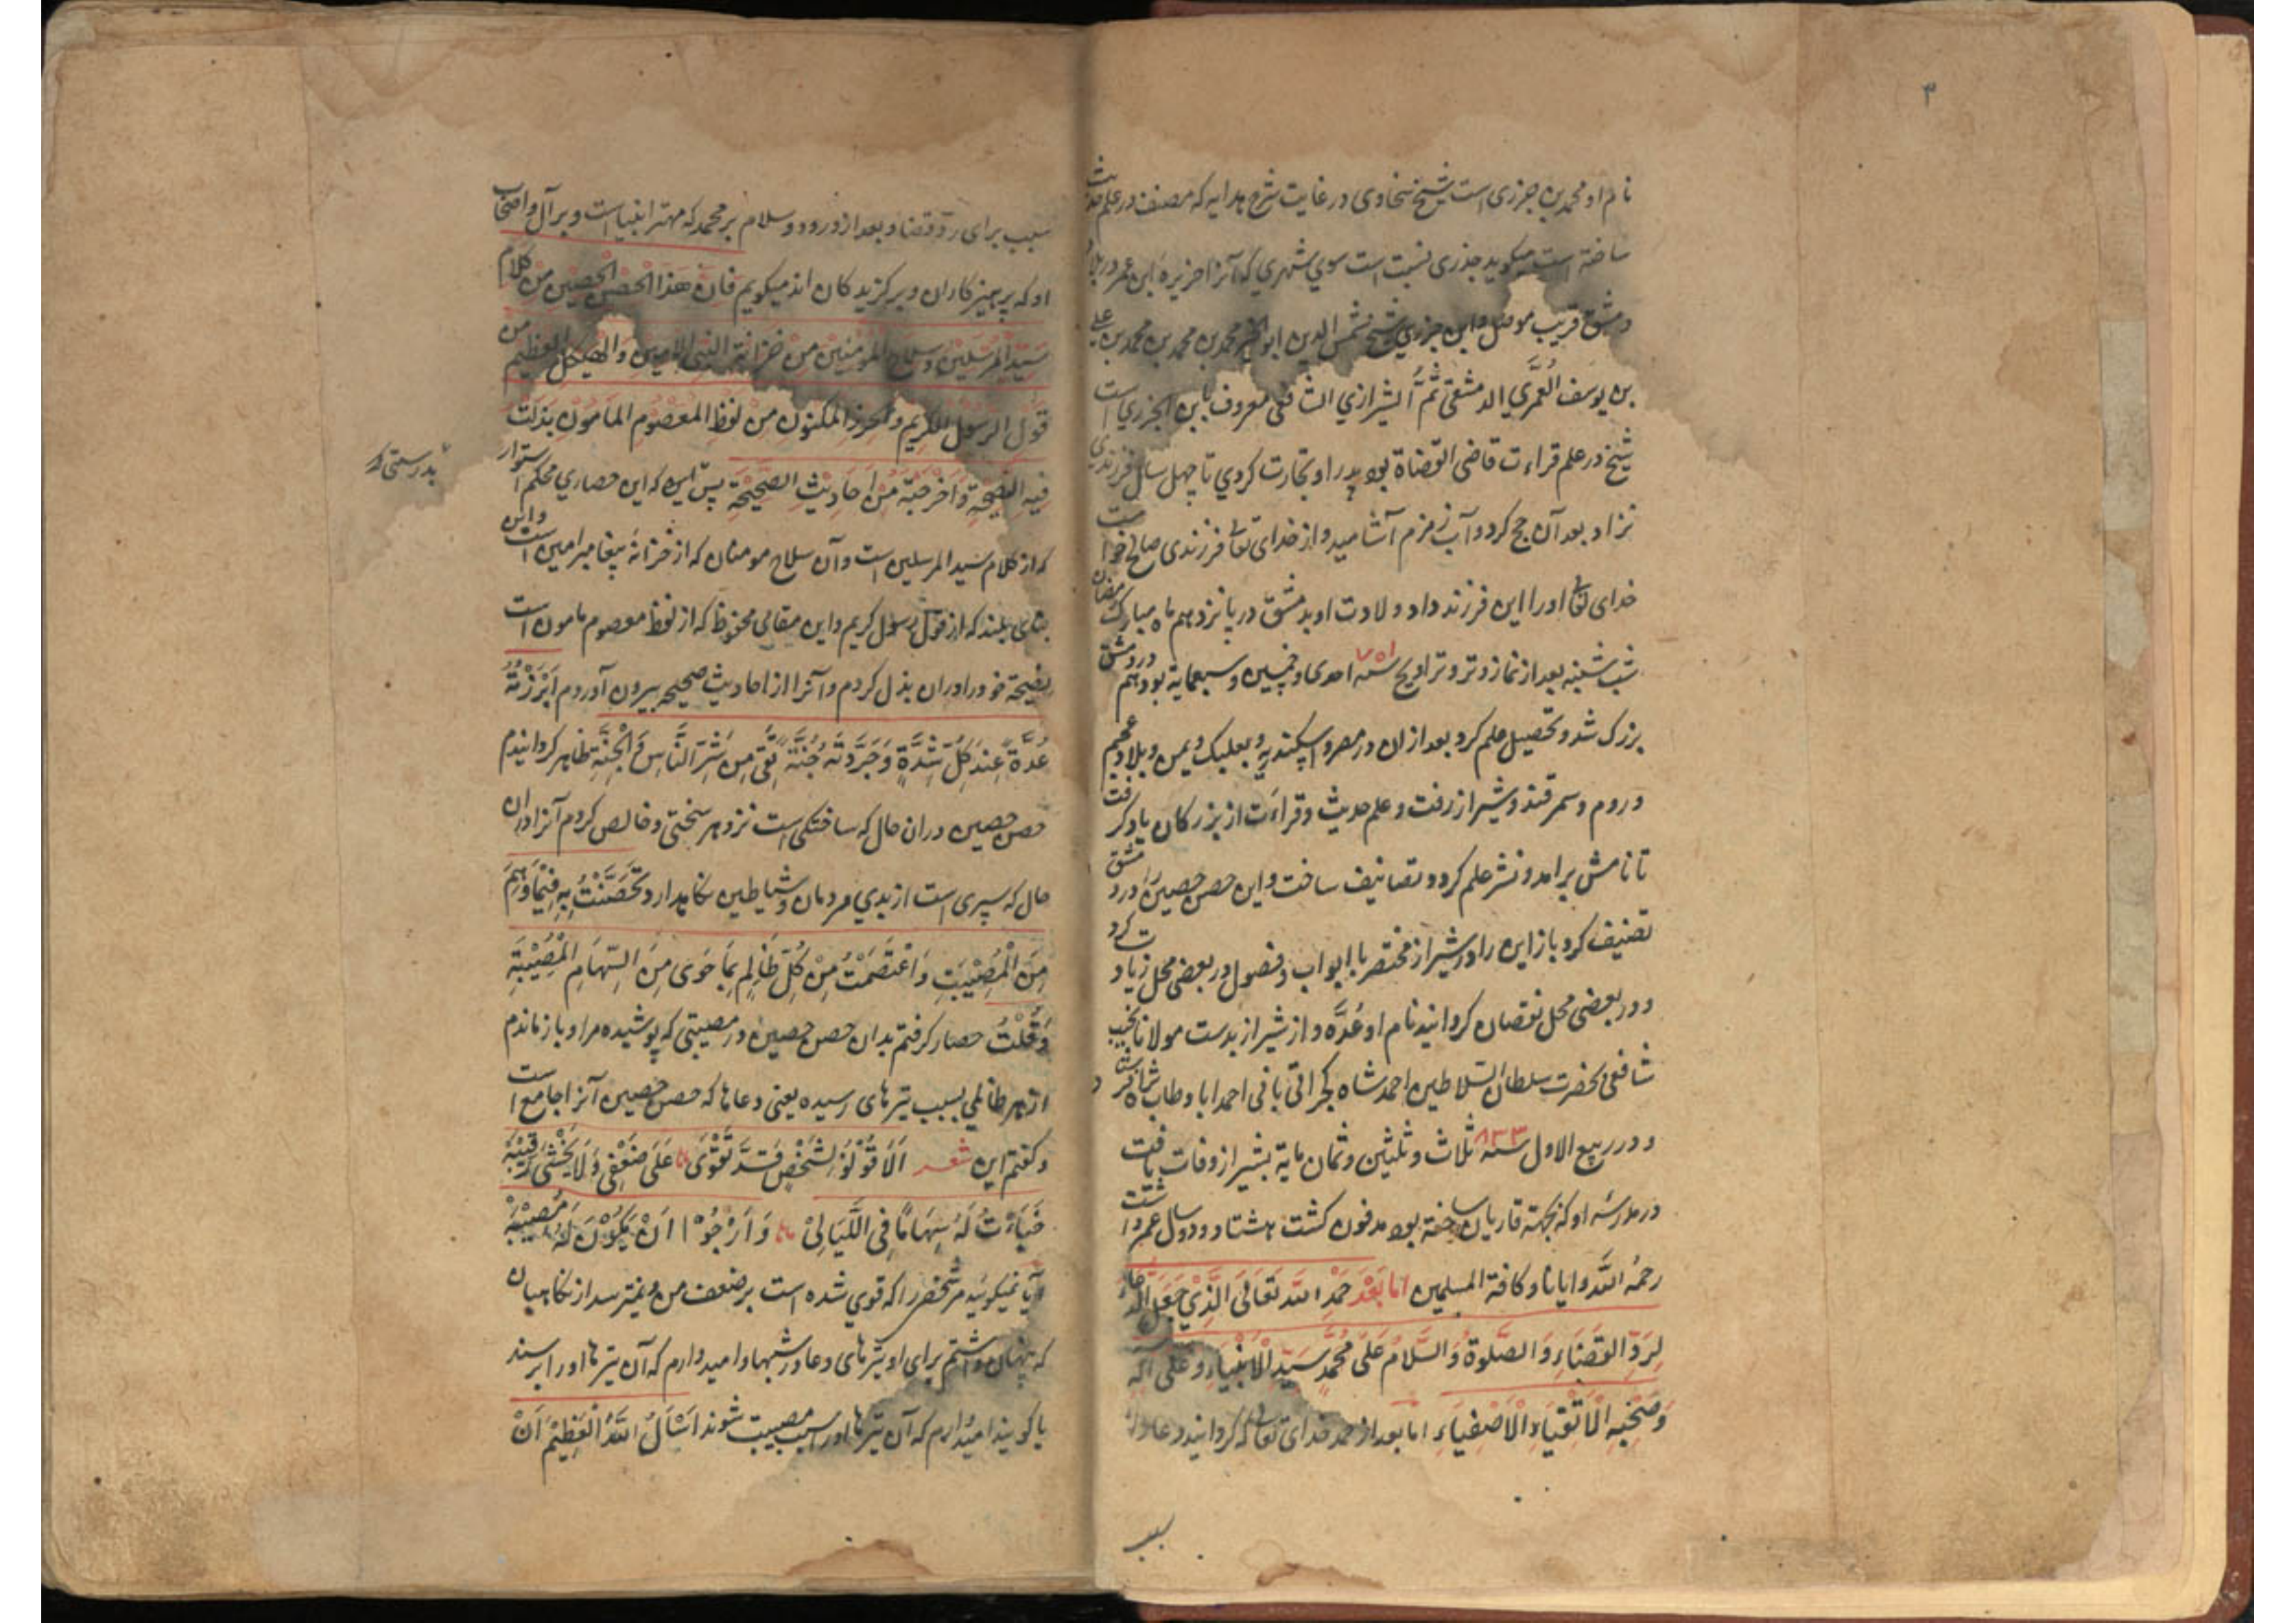 ۳
نام او محمد بن جزری است شیخ سخاوی در غایت شرح هدایه که مصنف در علم حدیث
ساخته است میگوید جذری نسبت است سوی شهری که آنرا جزیره ابن عمر در بلاد
دمشق قریب موصل و ابن جزری شیخ شمس الدین ابو الخیر محمد بن محمد بن محمد بن علی
بن یوسف العُمَری الدمشقی ثُمَّ الشیرازی الشافعی معروف بابن الجزری است
شیخ در علم قراءت قاضی القضاة بود پدر او تجارت کردی تا چهل سال فرزندی
نزاد بعد آن حج کرد و آب زمزم آشامید و از خدای تعالی فرزندی صالح خواست
خدای تعالی او را این فرزند داد ولادت او بدمشق در پانزدهم ماه مبارک رمضان
شب شنبه بعد از نماز وتر و تراویح سنه ۷۵۱ احدی و خمسین و سبعمایه بود هم در دمشق
بزرک شد و تحصیل علم کرد بعد ازان در مصر و اسکندیه و بعلبک و یمن و بلاد عجم
و روم و سمرقند و شیراز رفت و علم حدیث و قراءت از بزرکان یاد کرفت
تا نامش برامد و نشر علم کرد و تصانیف ساخت و این حصن حصین را در دمشق
تصنیف کرد باز این را در شیراز مختصر با ابواب و فصول در بعضی محل زیادت کرد
و در بعضی محل نقصان کردانید نام او عُدَّه و از شیراز بدست مولانا نجیب
شافعی بحضرت سلطان السلاطین احمد شاه کجراتی بانی احمداباد طاب ثراه
و در ربیع الاول سنه ۸۳۳ ثلاث و ثلثین و ثمان مایة بشیراز وفات یافت
در مدرسهٔ او که بجهة قاریان ساخته بود مدفون کشت هشتاد و دو سال عمر داشت
رحمهُ اللّه و ایانا و کافة المسلمین اما بَعْدَ حَمْدِ اللّه تَعَالَی الَّذِیْ جَعَلَ الدُّعَاءَ
لِرَدِّ القَضَاءِ وَ الصَّلوةُ وَ السَّلامُ عَلَی مُحَمَّدٍ سَیِّدِ الْاَنْبِیَاءِ وَ عَلَی آلِهِ
وَ صَحْبِهِ الْاَتْقِیَاءِ الْاَصْفِیَاءِ اما بعد از حمد خدای تعالی که کردانید دعا را
سبب
سبب برای رد قضا و بعد از درود و سلام بر محمد که مهتر انبیا است و بر آل و اصحاب
او که پرهیزکاران و برکزیدکان اند میکویم فَاِنَّ هَذَا الْحِصْنَ الْحَصِیْنَ مِنْ کَلَامِ
سَیِّدِ الْمُرْسَلِیْنَ وَ سِلَاحُ الْمُؤْمِنِیْنَ مِنْ خِزَانَةِ النَّبِیِّ الْاَمِیْنِ وَ الْهَیْکَلُ الْعَظِیْمُ مِنْ
قَوْلِ الرَّسُوْلِ الْکَرِیْمِ وَ الْحِرْزُ الْمَکْنُوْنُ مِنْ لَفْظِ الْمَعْصُوْمِ الْمَامُوْنِ بَذَلْتُ
فِیْهِ النَّصِیْحَةَ وَ اَخْرَجْتُهُ مِنْ اَحَادِیْثِ الصَّحِیْحَةِ پس این که این حصاری محکم استوار
بدرستی که
که از کلام سید المرسلین است و آن سلاح مومنان که از خزانهٔ پیغامبر امین است و این
بنای بلند که از قول رسول کریم و این مقالی محفوظ که از لفظ معصوم مامون است
نصیحة خود را دران بذل کردم و آنرا از احادیث صحیحه بیرون آوردم اَبْرَزْتُهُ
عُدَّةً عِنْدَ کُلِّ شِدَّةٍ وَ جَرَّدْتُهُ جُنَّةً تَقِیْ مِنْ شَرِّ النَّاسِ وَ الْجِنَّةِ ظاهر کردانیدم
حصن حصین دران حال که ساختکی است نزد هر سختی و خالص کردم آنرا دران
حال که سپری است از بدی مردمان و شیاطین نکاه دارد تَحَصَّنْتُ بِهِ فِیْمَا دَهَمَ
مِنَ الْمُصِیْبَةِ وَ اعْتَصَمْتُ مِنْ کُلِّ ظَالِمٍ بِمَا حَوَی مِنَ السِّهَامِ الْمُصِیْبَةِ
وَ قُلْتُ حصار کرفتم بدان حصن حصین در مصیبتی که پوشیده مرا و باز ماندم
از هر ظالمی بسبب تیرهای رسیده یعنی دعاها که حصن حصین آنرا جامع است
و کفتم این شعر اَلَا قُوْلُوْا لِشَخْصٍ قَدْ تَقَوَّی عَلَی ضَعْفِیْ وَ لَا یَخْشَی رَقِیْبَهُ
خَبَاْتُ لَهُ سِهَامًا فِی اللَّیَالِیْ وَ اَرْجُوْا اَنْ یَکُوْنَ لَهُ مُصِیْبَهُ
آیا نمیکوئید مر شخص را که قوی شده است بر ضعف من و نمیترسد از نکاهبان
که پنهان داشتم برای او تیرهای دعا در شبها و امیدوارم که آن تیرها او را برسند
یا کویند امیدوارم که آن تیرها او را سبب مصیبت شوند اَسْاَلُ اللّهَ الْعَظِیْمَ اَنْ